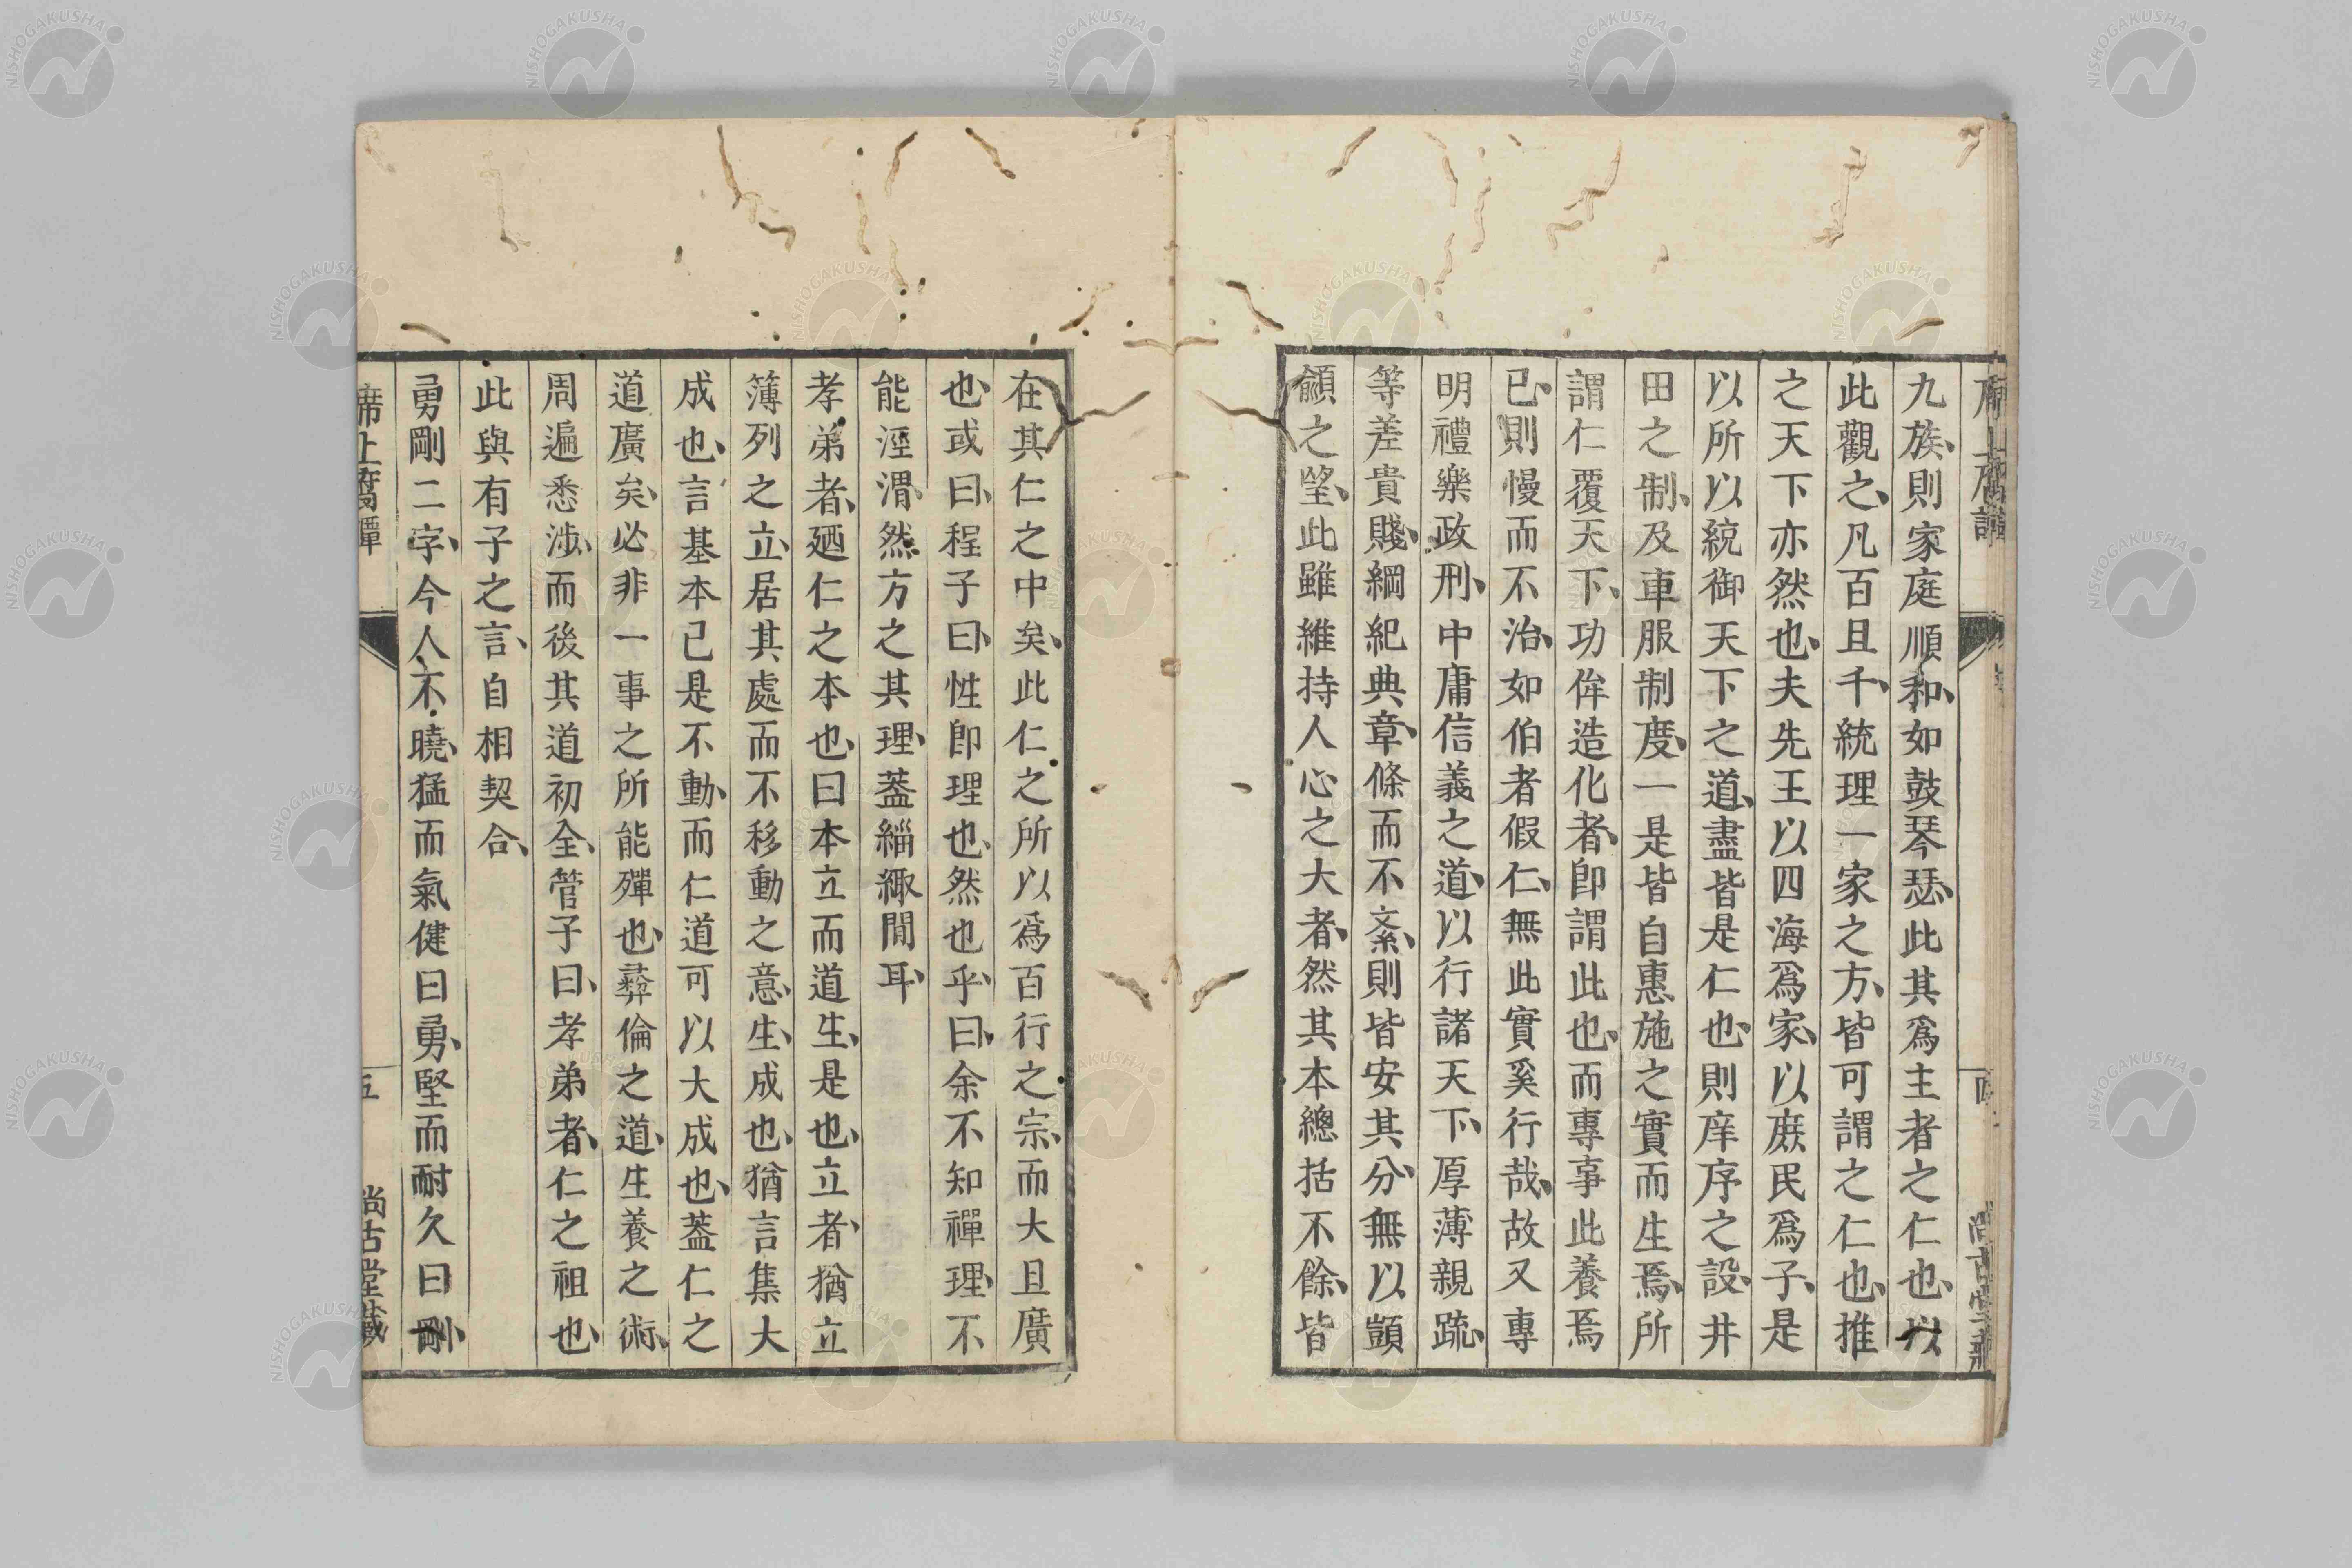 九族、則家庭順和、如鼓琴瑟、此其爲主者之仁也、以
此觀之、凡百且千、統理一家之方、皆可謂之仁也、推
之天下亦然也、夫先王以四海爲家、以庶民爲子、是
以所以統御天下之道、盡皆是仁也、則庠序之設、井
田之制、及車服制度、一是皆自惠施之實而生焉、所
謂仁覆天下、功侔造化者、卽謂此也、而專事此養焉
已、則慢而不治、如伯者假仁、無此實奚行哉、故又專
明禮樂政刑、中庸信義之道、以行諸天下、厚薄親疏、
等差貴賤、綱紀典章、條而不紊、則皆安其分、無以顗
顧之望、此雖維持人心之大者、然其本總括不餘、皆
在其仁之中矣、此仁之所以爲百行之宗、而大且廣
也、或曰、程子曰、性卽理也、然也乎、曰、余不知禪理、不
能涇渭、然方之其理、蓋緇緅間耳、
孝弟者、廼仁之本也、曰本立而道生、是也、立者、猶立
簿列之立、居其處而不移動之意、生、成也、猶言集大
成也、言基本已是不動、而仁道可以大成也、蓋仁之
道廣矣、必非一事之所能殫也、彝倫之道、生養之術、
周遍悉涉、而後其道初全、管子曰、孝弟者、仁之祖也、
此與有子之言、自相契合、
勇剛二字、今人不曉、猛而氣健曰勇、堅而耐久曰剛、
席上腐譚
五
尚古堂藏
NISHOGAKUSHA